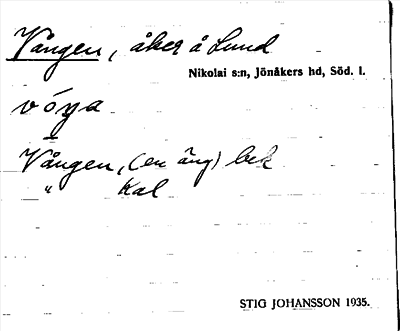 Vången, åker å Lund
Nikolai s:n, Jönåkers hd, Söd. l.
Vången, (en äng) bek
" Kal
STIG JOHANSSON 1935.